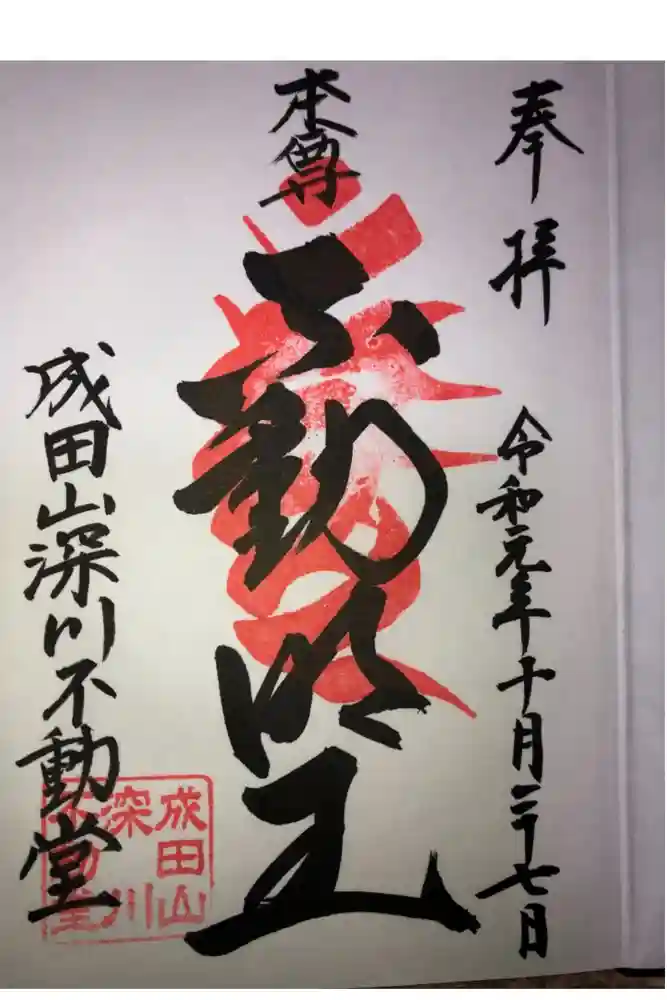 奉拝
令和元年十月二十七日
本尊
不動明王
成田山深川不動堂
成田山
深川
不動堂